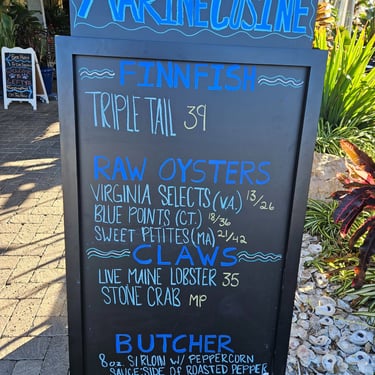 MARINE CUISINE
FINNFISH
TRIPLE TAIL 39
RAW OYSTERS
VIRGINIA SELECTS (VA.) 13/26
BLUE POINTS (CT.) 18/36
SWEET PETITES (MA) 21/42
CLAWS
LIVE MAINE LOBSTER 35
STONE CRAB MP
BUTCHER
8oz SIRLOIN W/ PEPPERCORN
SAUCE SIDE OF ROASTED PEPPER